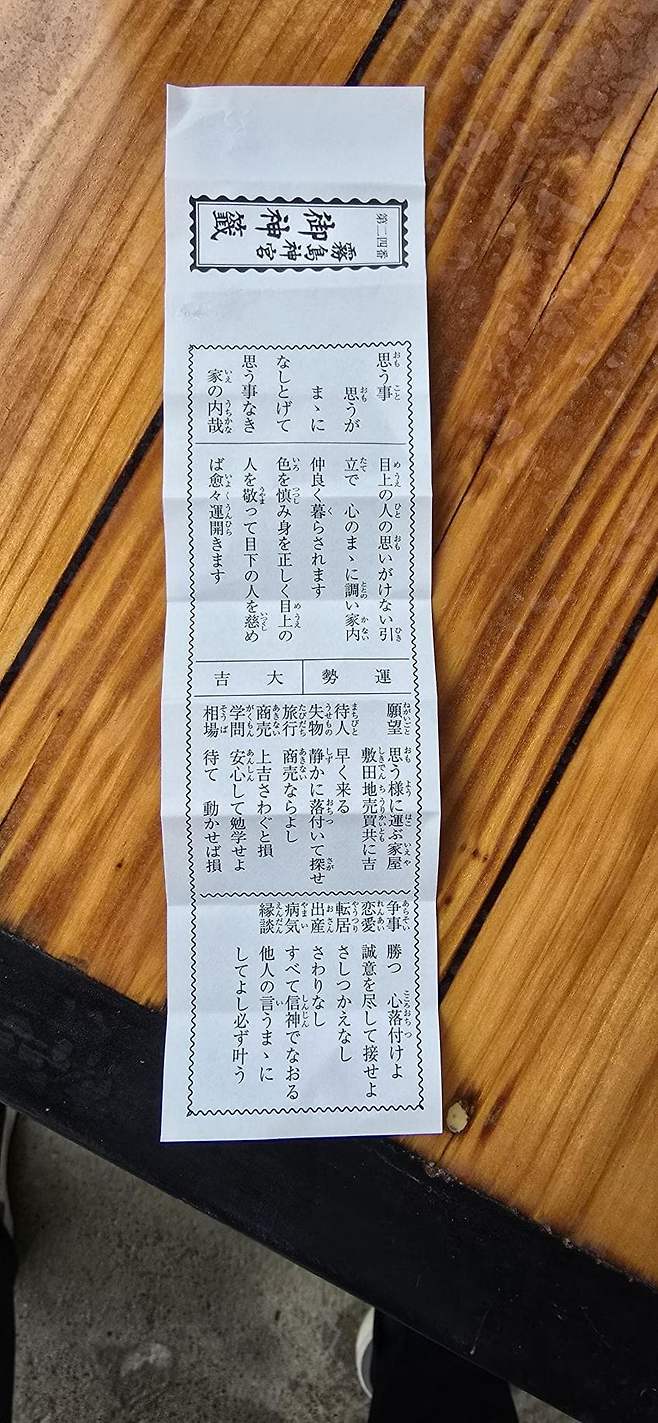 第二四番
霧島神宮
御神籤
思う事
思うが
まゝに
なしとげて
思う事なき
家の内哉
目上の人の思いがけない引
立で 心のまゝに調い家内
仲良く暮らされます
色を慎み身を正しく目上の
人を敬って目下の人を慈め
ば愈々運開きます
運勢
大吉
願望 思う様に運ぶ家屋
敷田地売買共に吉
待人 早く来る
失物 静かに落付いて探せ
旅行 商売ならよし
商売 上吉さわぐと損
学問 安心して勉学せよ
相場 待て 動かせば損
争事 勝つ 心落付けよ
恋愛 誠意を尽して接せよ
転居 さしつかえなし
出産 さわりなし
病気 すべて信神でなおる
縁談 他人の言うまゝに
してよし必ず叶う